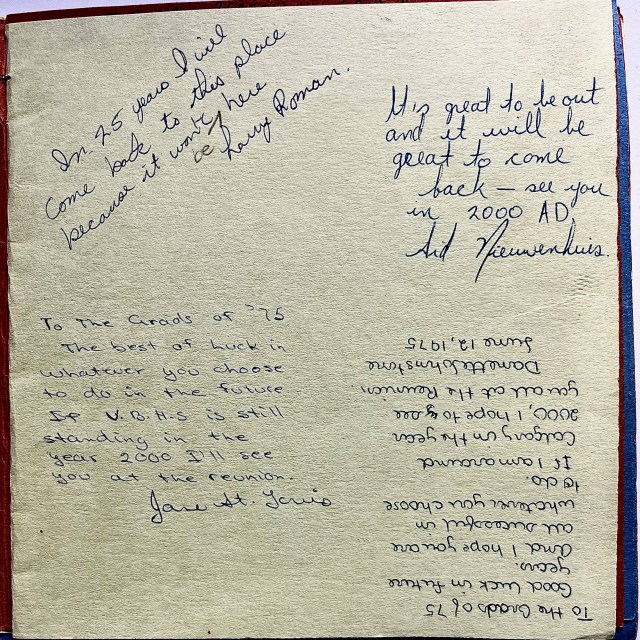 In 25 years I will
come back to this place
because it won't here
be
Larry Roman.
It's great to be out
and it will be
great to come
back – see you
in 2000 AD,
Sid Nieuwenhuis.
To The Grads of '75
The best of Luck in
whatever you choose
to do in the future
If V.B.H.S is still
standing in the
year 2000 I'll see
you at the reunion.
Jane St. Louis
To the Grads of 75
Good Luck in future
years.
And I hope you are
all successful in
whatever you choose
to do.
If I am around
Calgary in the year
2000, I hope to see
you all at the Reunion.
Danette Johnstone
June 12, 1975